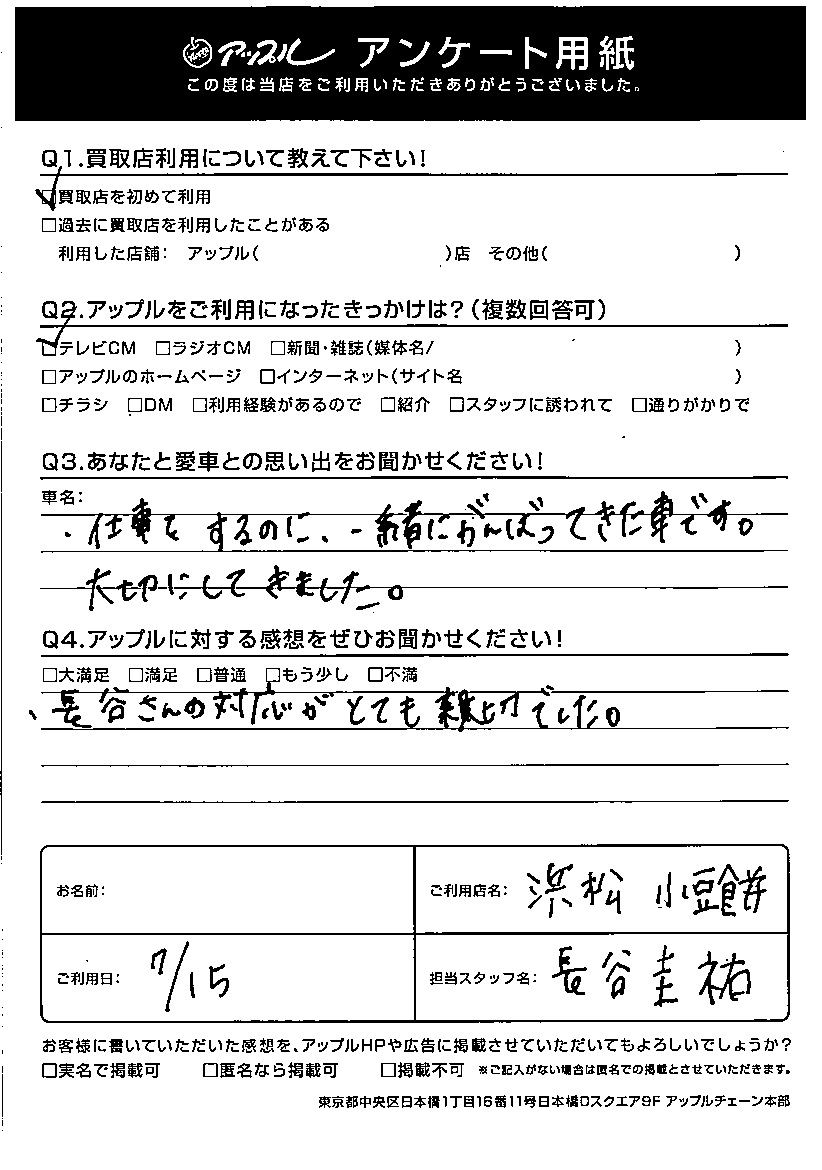 アップル アンケート用紙
この度は当店をご利用いただきありがとうございました。
Q1.買取店利用について教えて下さい!
☑買取店を初めて利用
□過去に買取店を利用したことがある
利用した店舗: アップル( )店 その他( )
Q2.アップルをご利用になったきっかけは?(複数回答可)
☑テレビCM □ラジオCM □新聞・雑誌(媒体名/ )
□アップルのホームページ □インターネット(サイト名 )
□チラシ □DM □利用経験があるので □紹介 □スタッフに誘われて □通りがかりで
Q3.あなたと愛車との思い出をお聞かせください!
車名:
・仕事をするのに、一緒にがんばってきた車です。
大切にしてきました。
Q4.アップルに対する感想をぜひお聞かせください!
□大満足 □満足 □普通 □もう少し □不満
、長谷さんの対応がとても親切でした。
お名前:
ご利用店名: 浜松 小豆餅
ご利用日: 7/15
担当スタッフ名: 長谷圭祐
お客様に書いていただいた感想を、アップルHPや広告に掲載させていただいてもよろしいでしょうか?
□実名で掲載可 □匿名なら掲載可 □掲載不可 ※ご記入がない場合は匿名での掲載とさせていただきます。
東京都中央区日本橋1丁目16番11号日本橋Dスクエア9F アップルチェーン本部